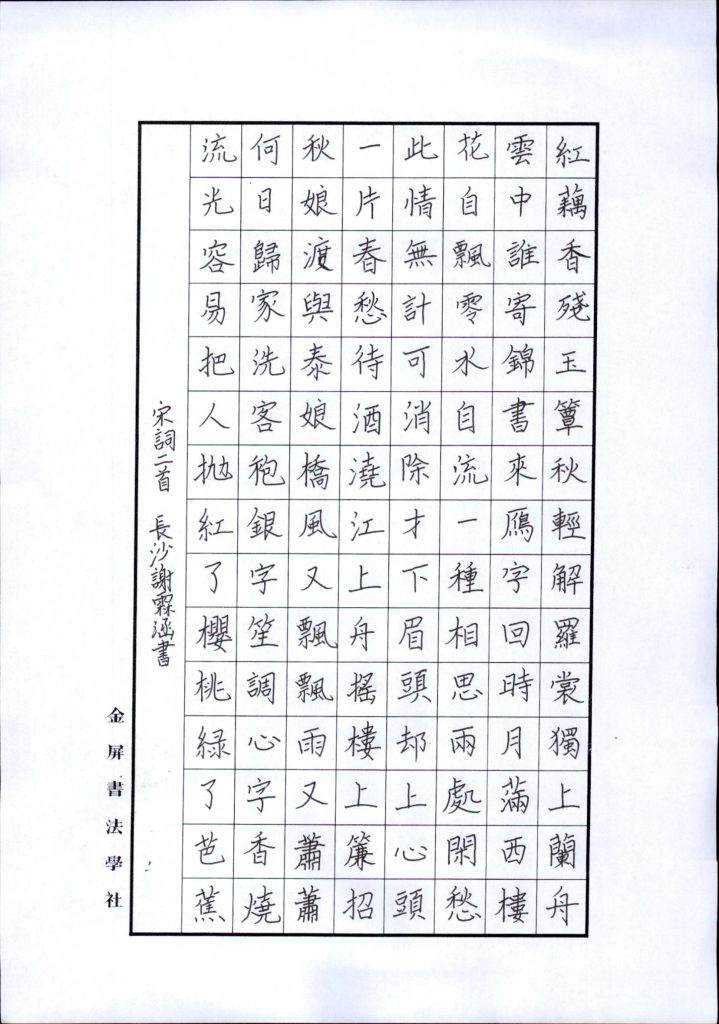 紅藕香殘玉簟秋輕解羅裳獨上蘭舟
雲中誰寄錦書來鴈字回時月滿西樓
花自飄零水自流一種相思兩處閑愁
此情無計可消除才下眉頭却上心頭
一片春愁待酒澆江上舟搖樓上簾招
秋娘渡與泰娘橋風又飄飄雨又蕭蕭
何日歸家洗客袍銀字笙調心字香燒
流光容易把人抛紅了櫻桃綠了芭蕉
宋詞二首 長沙謝霖涵書
金屏書法學社